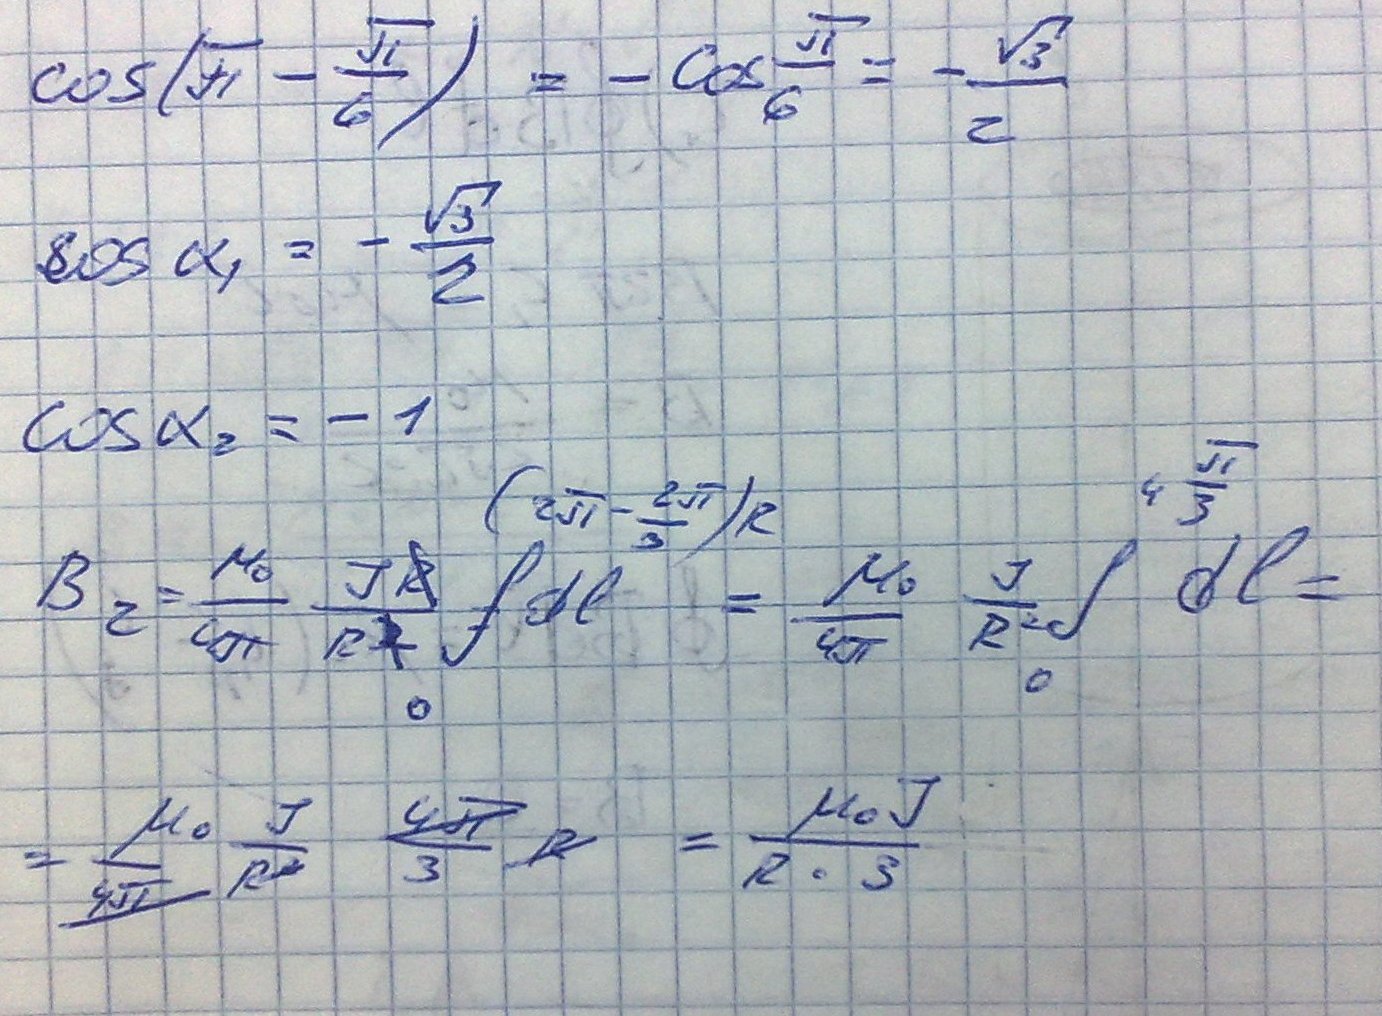 cos(π - π/6) = - cos π/6 = - √3/2
cos α₁ = - √3/2
cos α₂ = - 1
B₂ = μ₀/4π JR/R² ∫₀^((2π - 2π/3)R) dl = μ₀/4π J/R² ∫₀^(4 π/3) dl =
= μ₀/4π J/R² 4π/3 R = μ₀J/R · 3